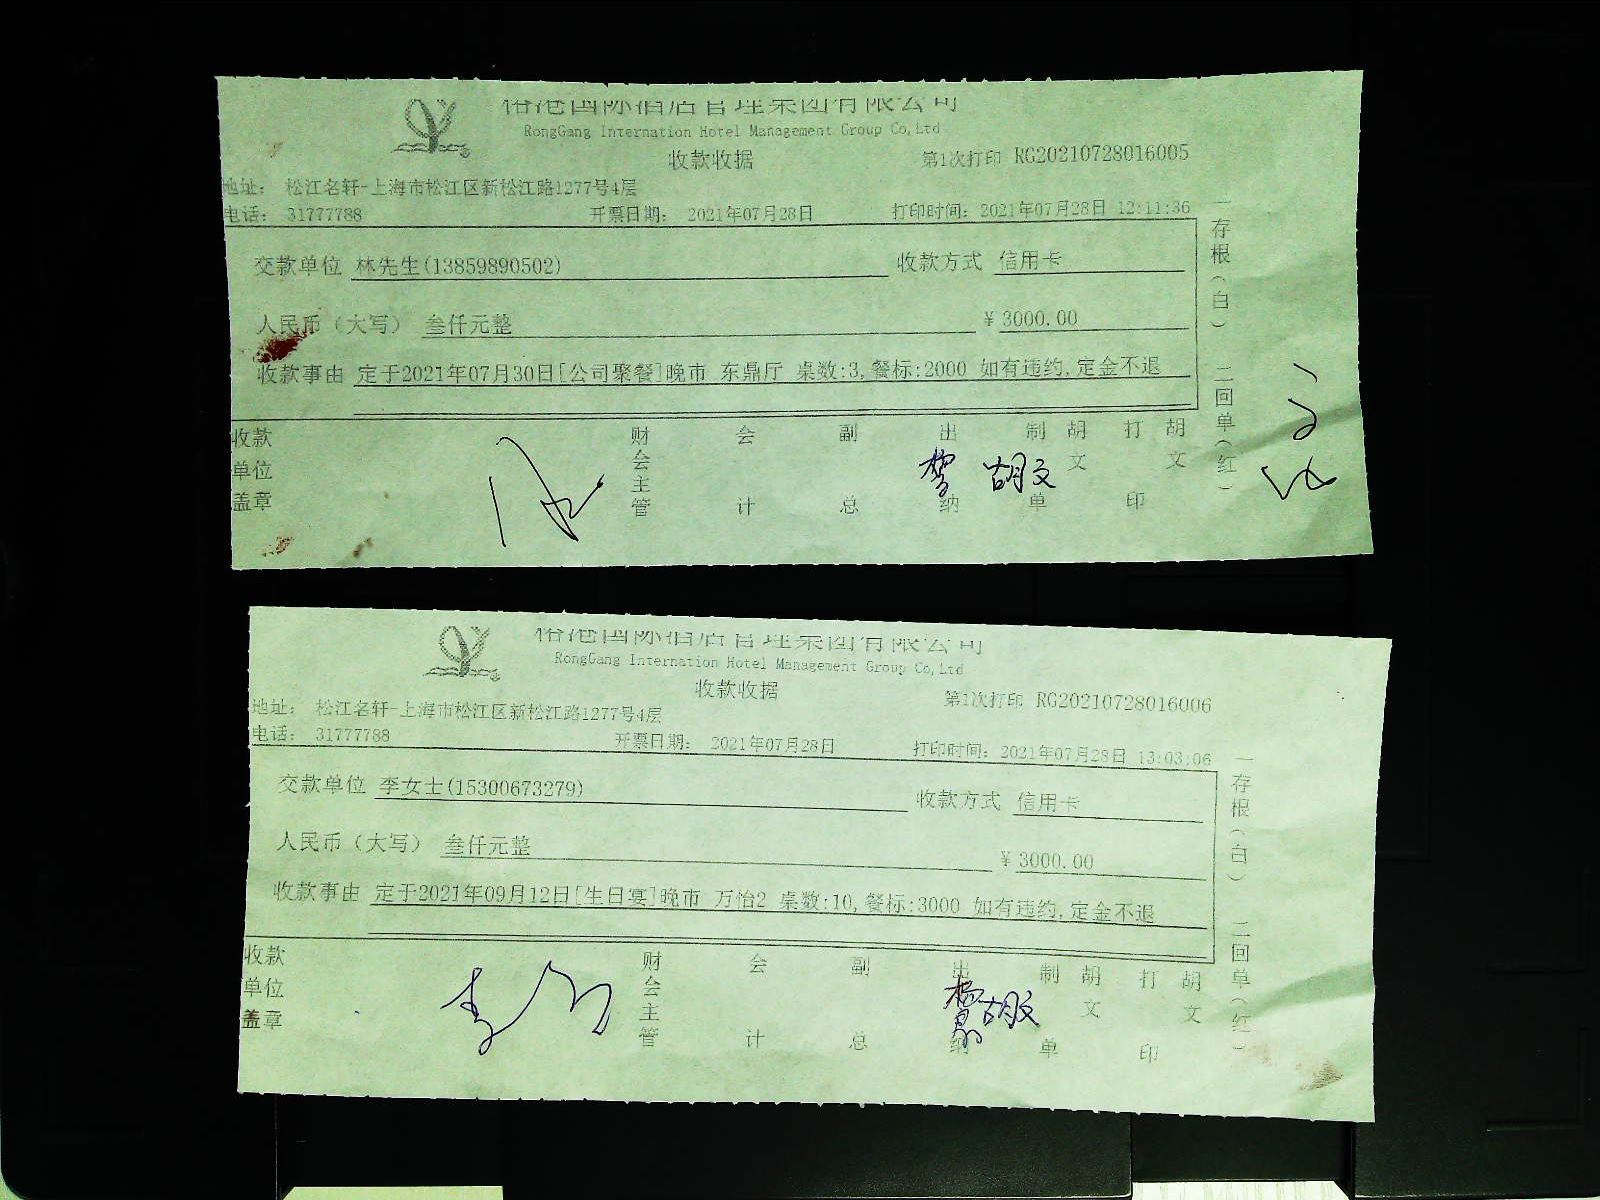 裕港国际酒店管理集团有限公司
RongGang Internation Hotel Management Group Co,Ltd
收款收据
第1次打印 RG20210728016005
地址： 松江名轩-上海市松江区新松江路1277号4层
电话： 31777788 开票日期： 2021年07月28日 打印时间：2021年07月28日 12:11:36
交款单位 林先生(13859890502) 收款方式 信用卡
人民币（大写） 叁仟元整 ¥3000.00
收款事由 定于2021年07月30日[公司聚餐]晚市 东鼎厅 桌数:3,餐标:2000 如有违约,定金不退
收款单位盖章 财会主管 会计 副总 出纳 制单 胡文 打印 胡文
胡文
一存根（白） 二回单（红）
裕港国际酒店管理集团有限公司
RongGang Internation Hotel Management Group Co,Ltd
收款收据
第1次打印 RG20210728016006
地址： 松江名轩-上海市松江区新松江路1277号4层
电话： 31777788 开票日期： 2021年07月28日 打印时间：2021年07月28日 13:03:06
交款单位 李女士(15300673279) 收款方式 信用卡
人民币（大写） 叁仟元整 ¥3000.00
收款事由 定于2021年09月12日[生日宴]晚市 万怡2 桌数:10,餐标:3000 如有违约,定金不退
收款单位盖章 财会主管 会计 副总 出纳 制单 胡文 打印 胡文
胡文
一存根（白） 二回单（红）